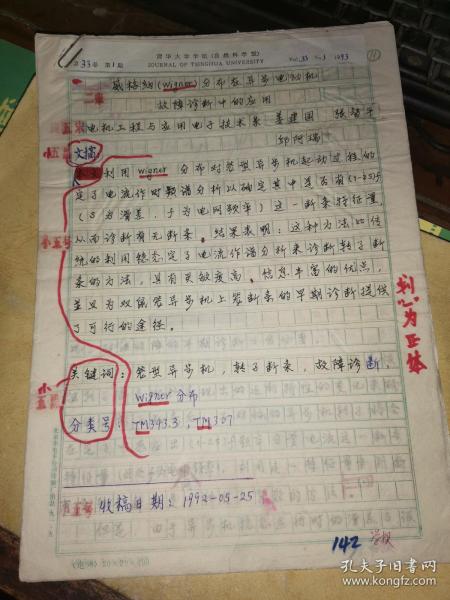 第33卷 第1期
清华大学学报(自然科学版)
JOURNAL OF TSINGHUA UNIVERSITY
Vol.33 No.1 1993
威格纳(Wigner)分布在异步电动机
二宋
故障诊断中的应用
电机工程与应用电子技术系 姜建国 张智平
邱阿瑞
小五
文摘
利用Wigner分布对笼型异步机起动过程的
定子电流作时频谱分析以确定其中是否有(1-2s)f
(s为滑差,f为电网频率)这一断条特征量,
小五号
从而诊断有无断条。结果表明:这种方法比传
统的利用稳态定子电流作谱分析来诊断转子断
条的方法,具有灵敏度高、信息丰富的优点,
并且为双鼠笼异步机上笼断条的早期诊断提供
了可行的途径。
s、f为正体
小五
关键词:笼型异步机,转子断条,故障诊断,
Wigner分布
分类号:TM343.3,TM307
收稿日期:1992-05-25
142
学校
孔夫子旧书网